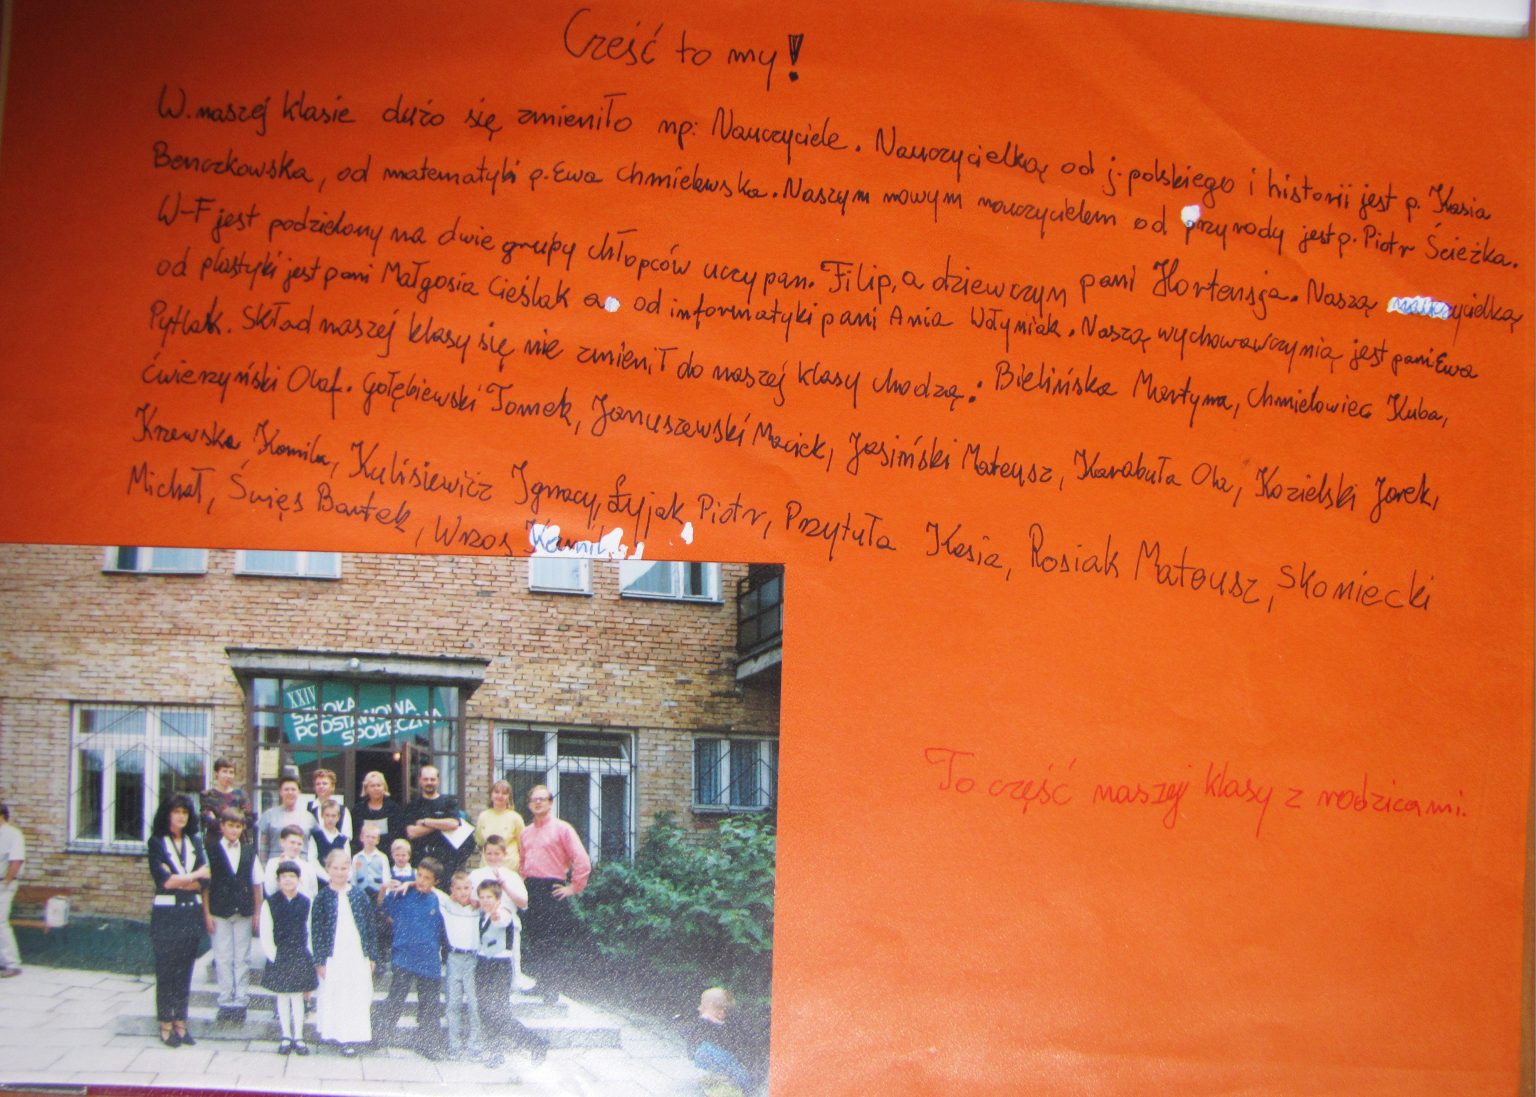 Cześć to my!
W naszej klasie dużo się zmieniło np: Nauczyciele. Nauczycielką od j. polskiego i historii jest p. Kasia
Benczkowska, od matematyki p. Ewa Chmielewska. Naszym nowym nauczycielem od przyrody jest p. Piotr Ścieżka.
W-F jest podzielony na dwie grupy chłopców uczy pan. Filip, a dziewczym pani Hortensja. Naszą nauczycielką
od plastyki jest pani Małgosia Cieślak a od informatyki pani Ania Włyniak. Naszą wychowawczynią jest pani Ewa
Pytlak. Skład naszej klasy się nie zmienił do naszej klasy chodzą: Bielińska Martyna, Chmielowiec Kuba,
Ćwierzyński Olaf. Gołębiewski Tomek, Januszewski Maciek, Jasiński Mateusz, Karabuła Ola, Kozielski Jarek,
Krzewska Kamila, Kulisiewicz Ignacy, Łyjak Piotr, Przytuła Kasia, Rosiak Mateusz, Skoniecki
Michał, Święs Bartek, Wrzos Kamil
XXIV
SZKOŁA
PODSTAWOWA
SPOŁECZNA
To część naszej klasy z rodzicami.